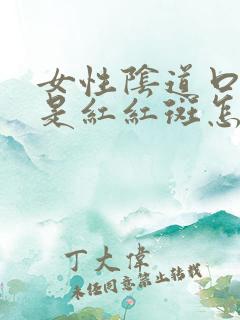 女性陰道口
是紅紅斑怎
丁大偉
未经同意禁止转载